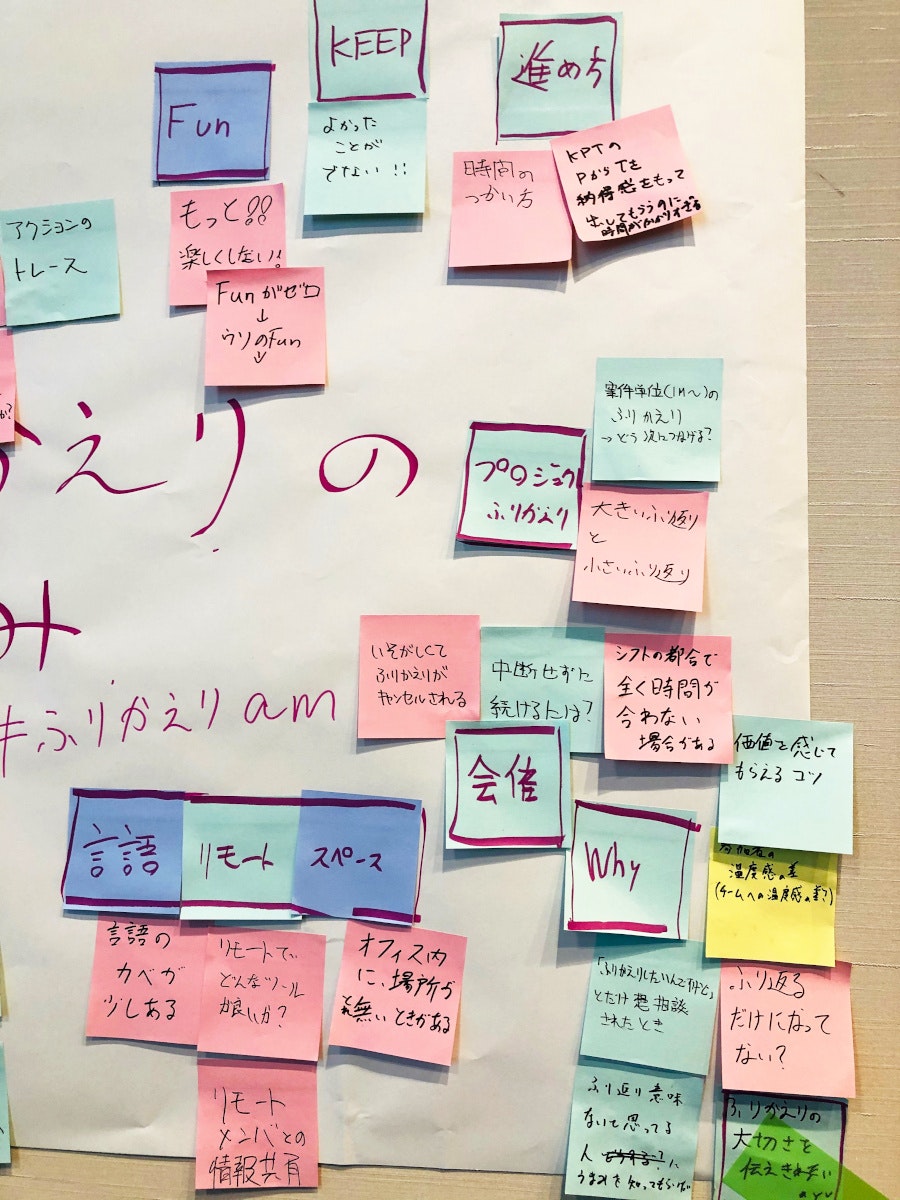 KEEP
進め方
Fun
よかった
ことが
でない!!
時間の
つかい方
KPTの
PからTを
納得感をもって
出してもらうのに
時間がかかりすぎる
アクションの
トレース
もっと!!
楽しくしたい!
Funがゼロ
↓
ウソのFun
↓
か?
かえりの
み
#ふりかえりam
案件単位(1M〜)の
ふりかえり
→どう次につなげる?
プロジェクト
ふりかえり
大きいふり返り
と
小さいふり返り
いそがしくて
ふりかえりが
キャンセルされる
中断せずに
続けるには?
シフトの都合で
全く時間が
合わない
場合がある
会催
価値を感じて
もらえるコツ
Why
参加者の
温度感の差
(チームへの温度感の差?)
言語
リモート
スペース
言語の
カベが
少しある
リモートで
どんなツール
が良いか?
オフィス内
に、場所が
無いときがある
リモート
メンバとの
情報共有
「ふりかえりしたいんですけど」
とだけ相談
されたとき
ふり返る
だけになって
ない?
ふり返り意味
ないと思ってる
人に
うまみを知ってもらうには
ふりかえりの
大切さを
伝えきれない
ayu